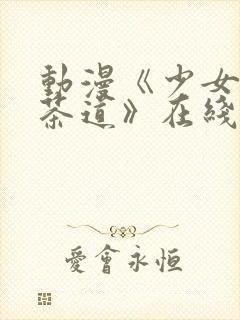 動漫《少女
茶道》在綫
愛會永恒